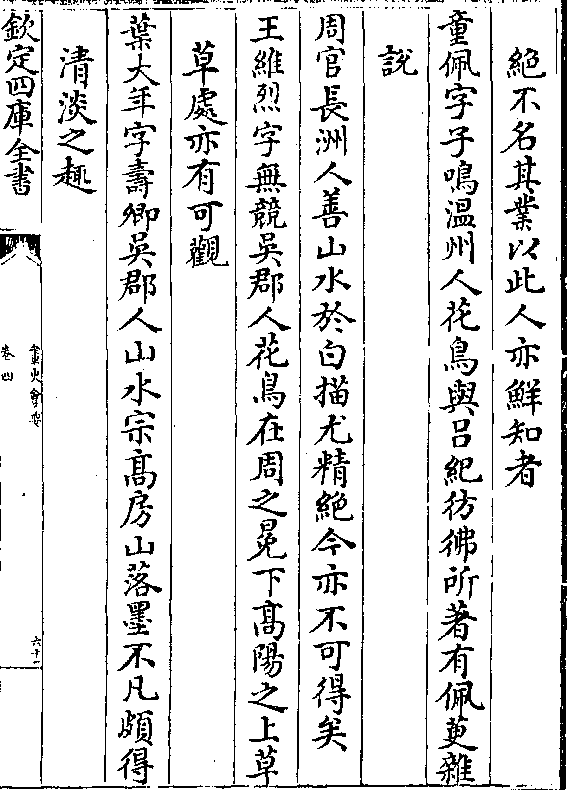 絶不名其業以此人亦鮮知者
童佩字子鳴温州人花鳥與吕紀彷彿所著有佩萸雜
說
周官長洲人善山水於白描尤精絶今亦不可得矣
王維烈字無競吳郡人花鳥在周之冕下髙陽之上草
草處亦有可觀
葉大年字壽卿吳郡人山水宗髙房山落墨不凡頗得
清淡之趣
欽定四庫全書
畫史會要
卷四
六十一